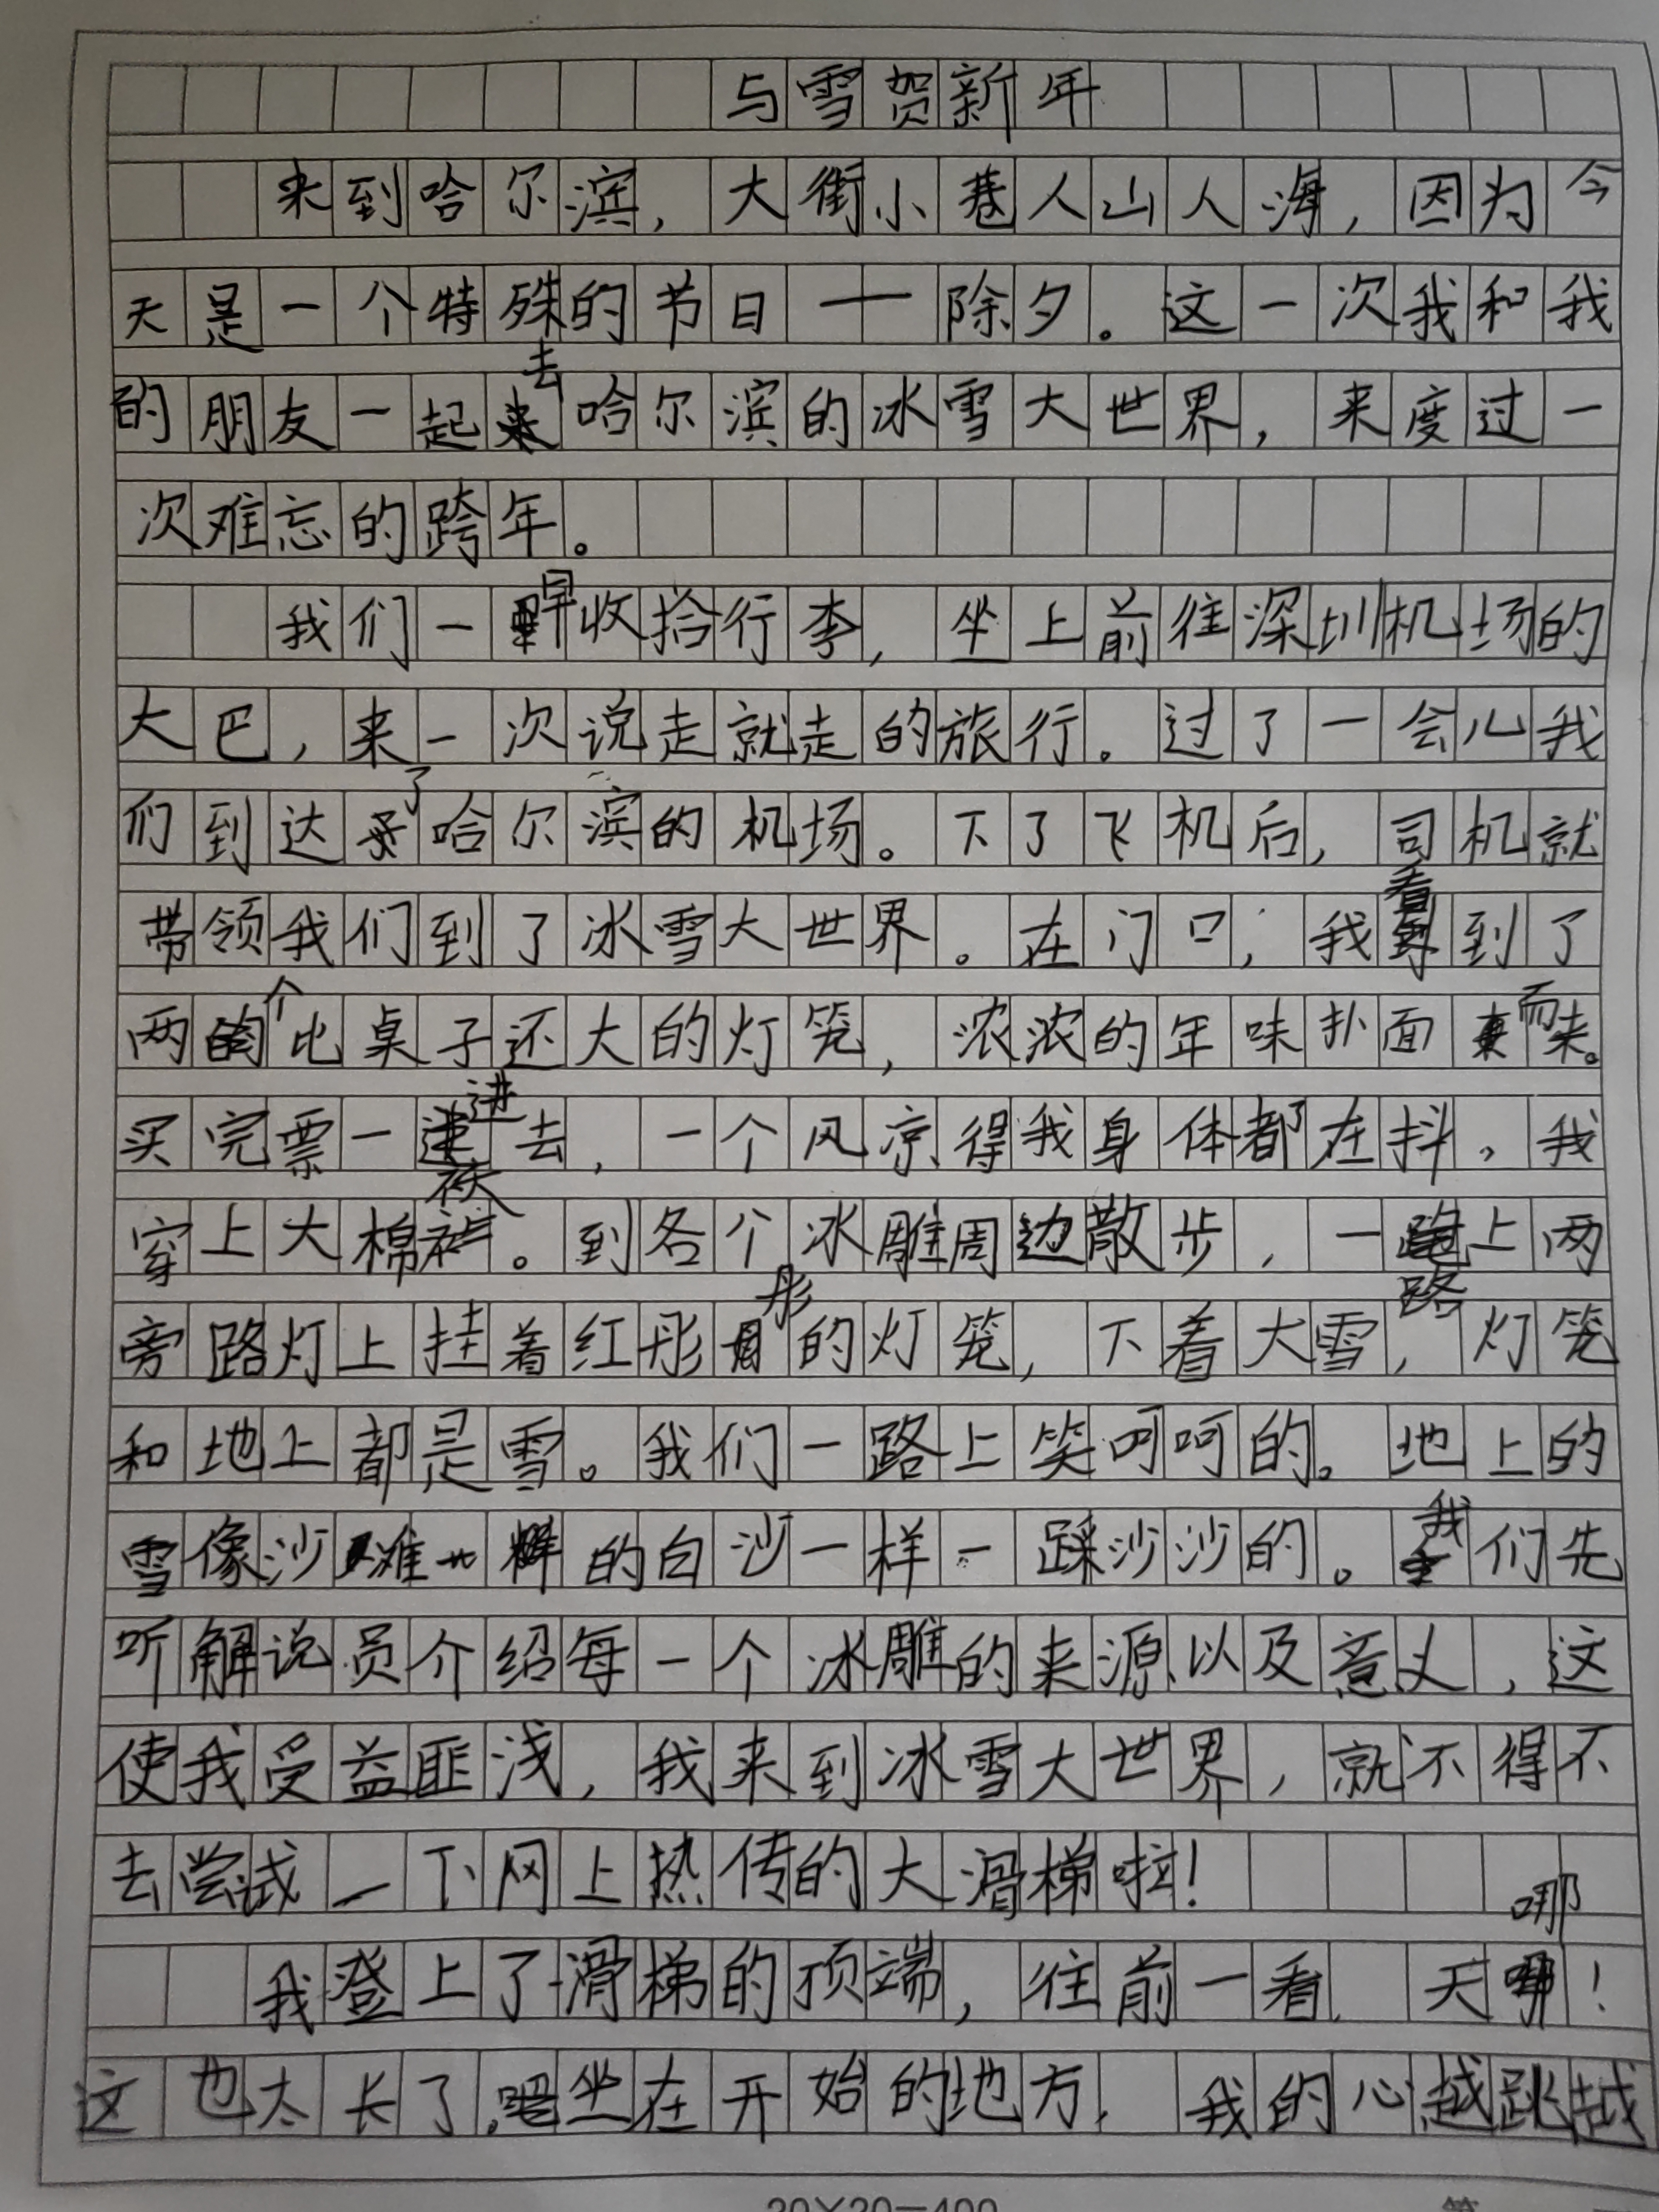 与雪贺新年
来到哈尔滨，大街小巷人山人海，因为今
天是一个特殊的节日——除夕。这一次我和我
的朋友一起去哈尔滨的冰雪大世界，来度过一
次难忘的跨年。
我们一早收拾行李，坐上前往深圳机场的
大巴，来一次说走就走的旅行。过了一会儿我
们到达了哈尔滨的机场。下了飞机后，司机就
带领我们到了冰雪大世界。在门口，我看到了
两个比桌子还大的灯笼，浓浓的年味扑面而来。
买完票一进去，一个风凉得我身体都在抖，我
穿上大棉袄。到各个冰雕周边散步，一路上两
旁路灯上挂着红彤彤的灯笼，下着大雪，灯笼
和地上都是雪。我们一路上笑呵呵的。地上的
雪像沙滩的白沙一样一踩沙沙的。我们先
听解说员介绍每一个冰雕的来源以及意义，这
使我受益匪浅，我来到冰雪大世界，就不得不
去尝试一下网上热传的大滑梯啦！
我登上了滑梯的顶端，往前一看，天哪！
这也太长了，坐在开始的地方，我的心越跳越
20×20=400